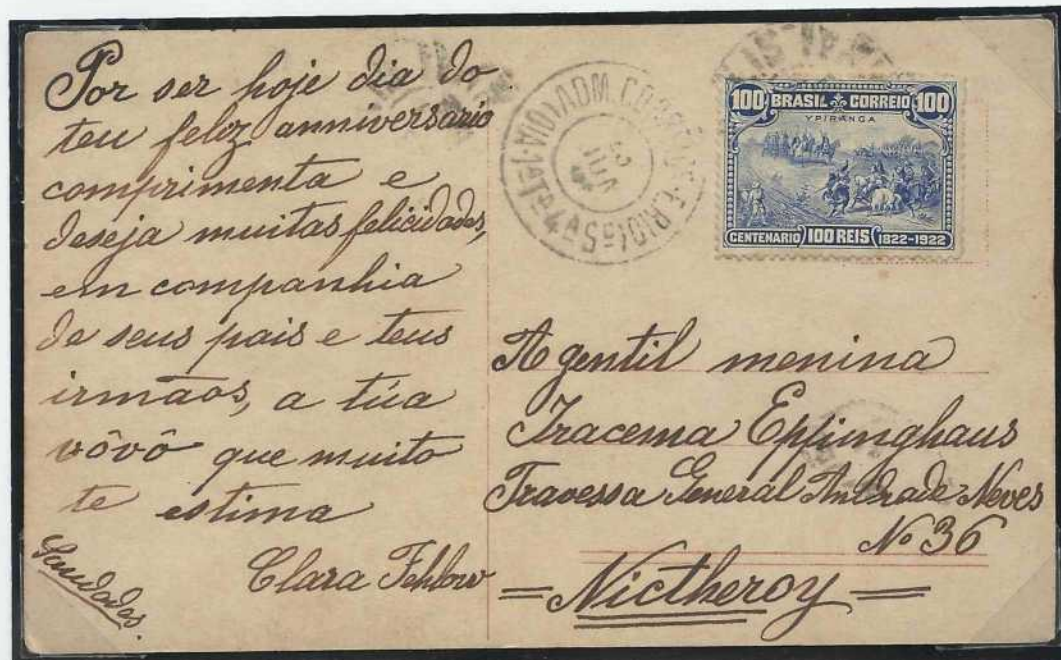 Por ser hoje dia do
teu feliz anniversario
comprimenta e
deseja muitas felicidades,
em companhia
de seus pais e teus
irmãos, a túa
vôvô que muito
te estima
Clara Fehlow
Saudades.
100 BRASIL CORREIO 100
YPIRANGA
CENTENARIO 100 REIS 1822-1922
A gentil menina
Iracema Eppinghaus
Travessa General Andrade Neves
No 36
= Nictheroy =